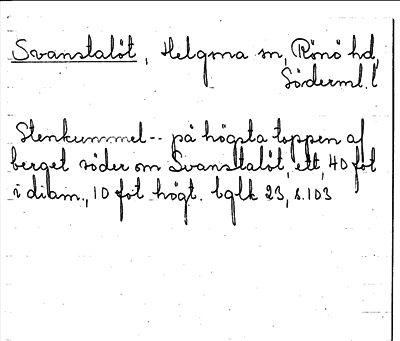 Svanstalöt, Helgona sn, Rönö hd,
Söderml. l
Stenkummel-- på högsta toppen af
berget söder om Svanstalöt, ett, 40 fot
i diam., 10 fot högt. bglk 23, s.103